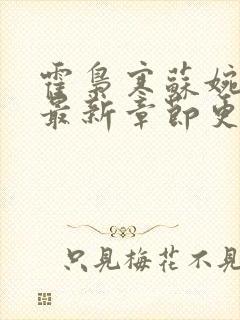 霍梟寒蘇婉
最新章節更
只見梅花不見